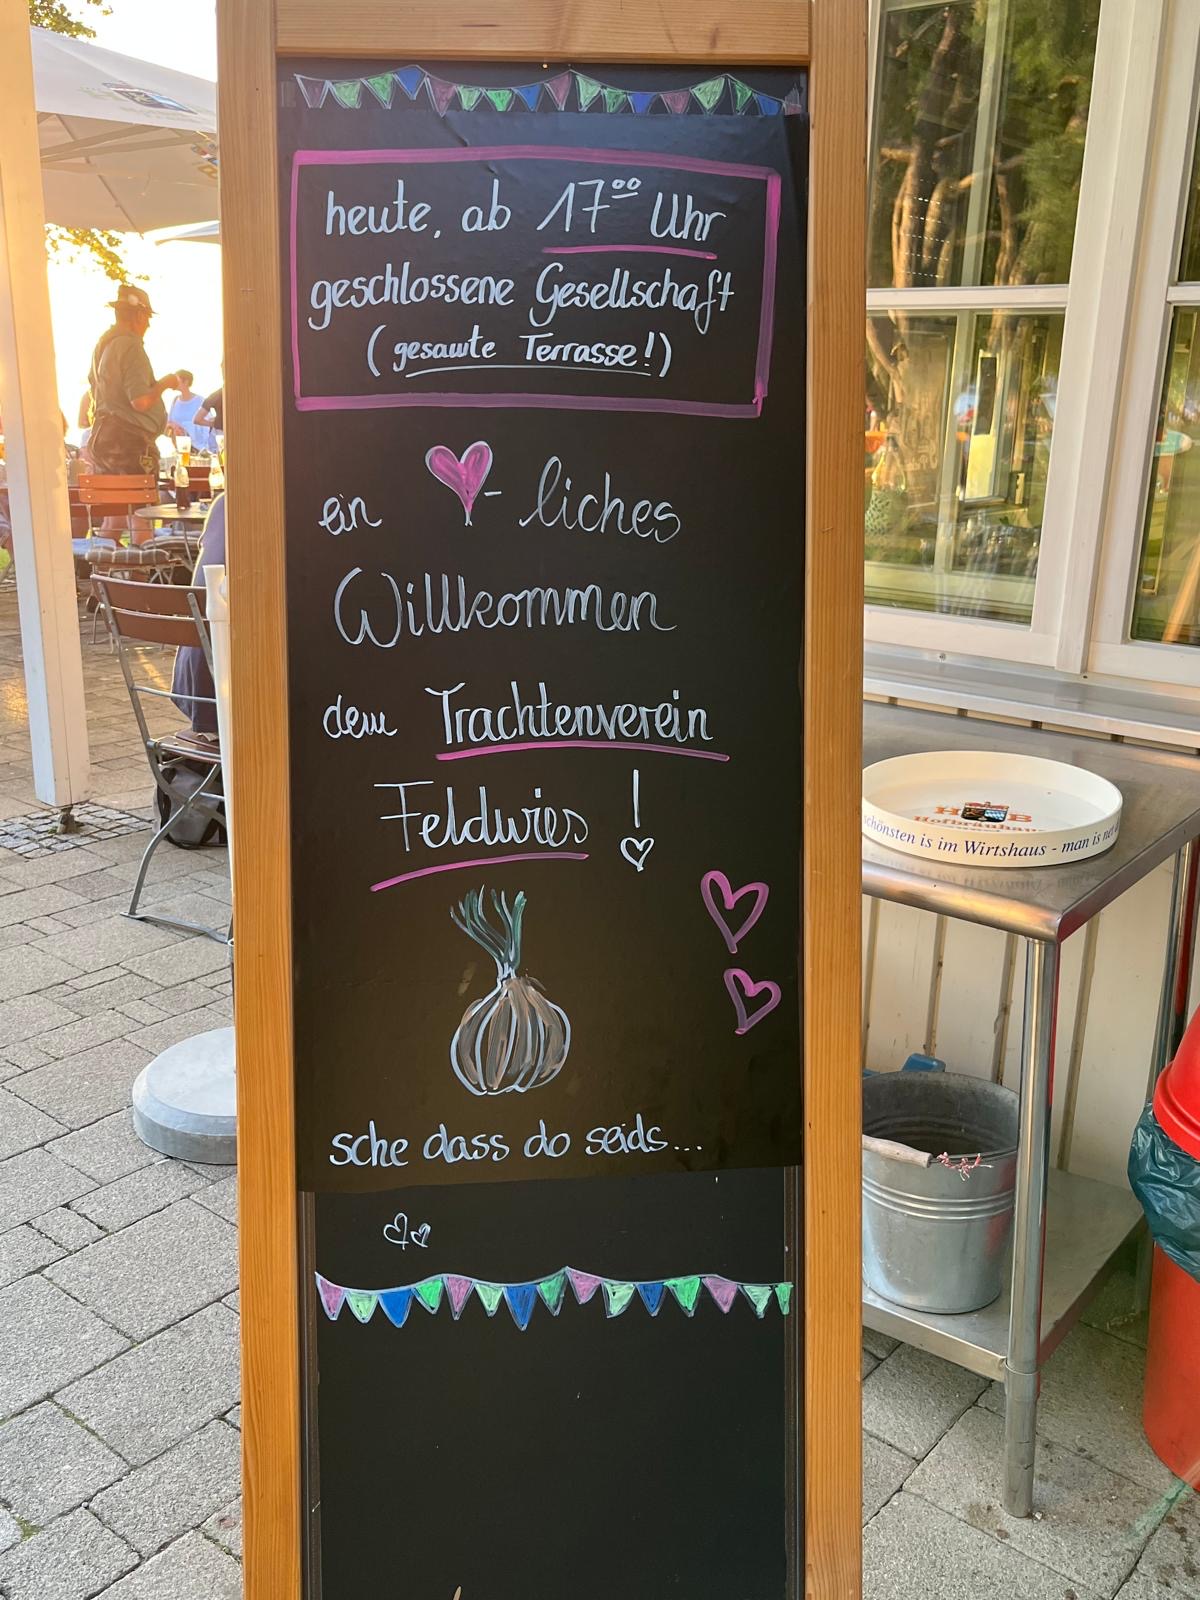 heute, ab 17⁰⁰ Uhr
geschlossene Gesellschaft
(gesamte Terrasse!)
ein ♥-liches
Willkommen
dem Trachtenverein
Feldwies !
sche dass do seids...
HB
Hofbräuhaus
schönsten is im Wirtshaus - man is net